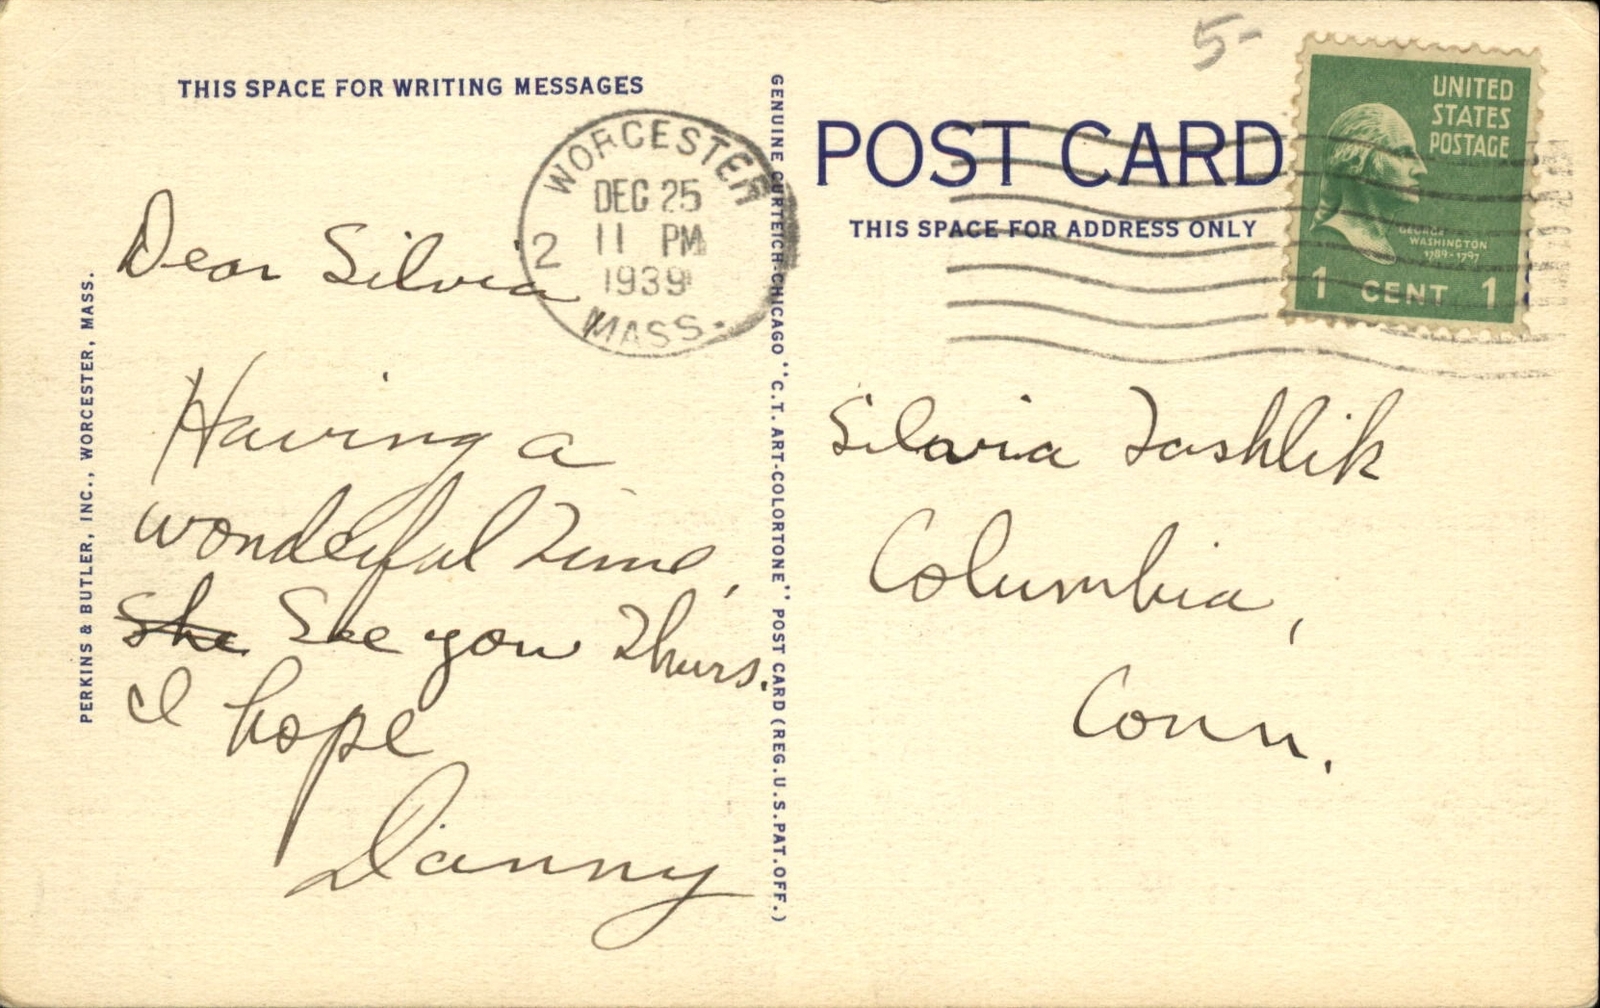 5-
THIS SPACE FOR WRITING MESSAGES
WORCESTER
DEC 25
11 PM
1939
2
MASS.
POST CARD
THIS SPACE FOR ADDRESS ONLY
UNITED
STATES
POSTAGE
GEORGE
WASHINGTON
1789-1797
1 CENT 1
Dear Silvia
Having a
wonderful time,
She See you Thurs.
I hope
Danny
Silavia Tashlik
Columbia,
Conn.
PERKINS & BUTLER, INC., WORCESTER, MASS.
GENUINE CURTEICH-CHICAGO "C.T. ART-COLORTONE" POST CARD (REG. U.S. PAT. OFF.)